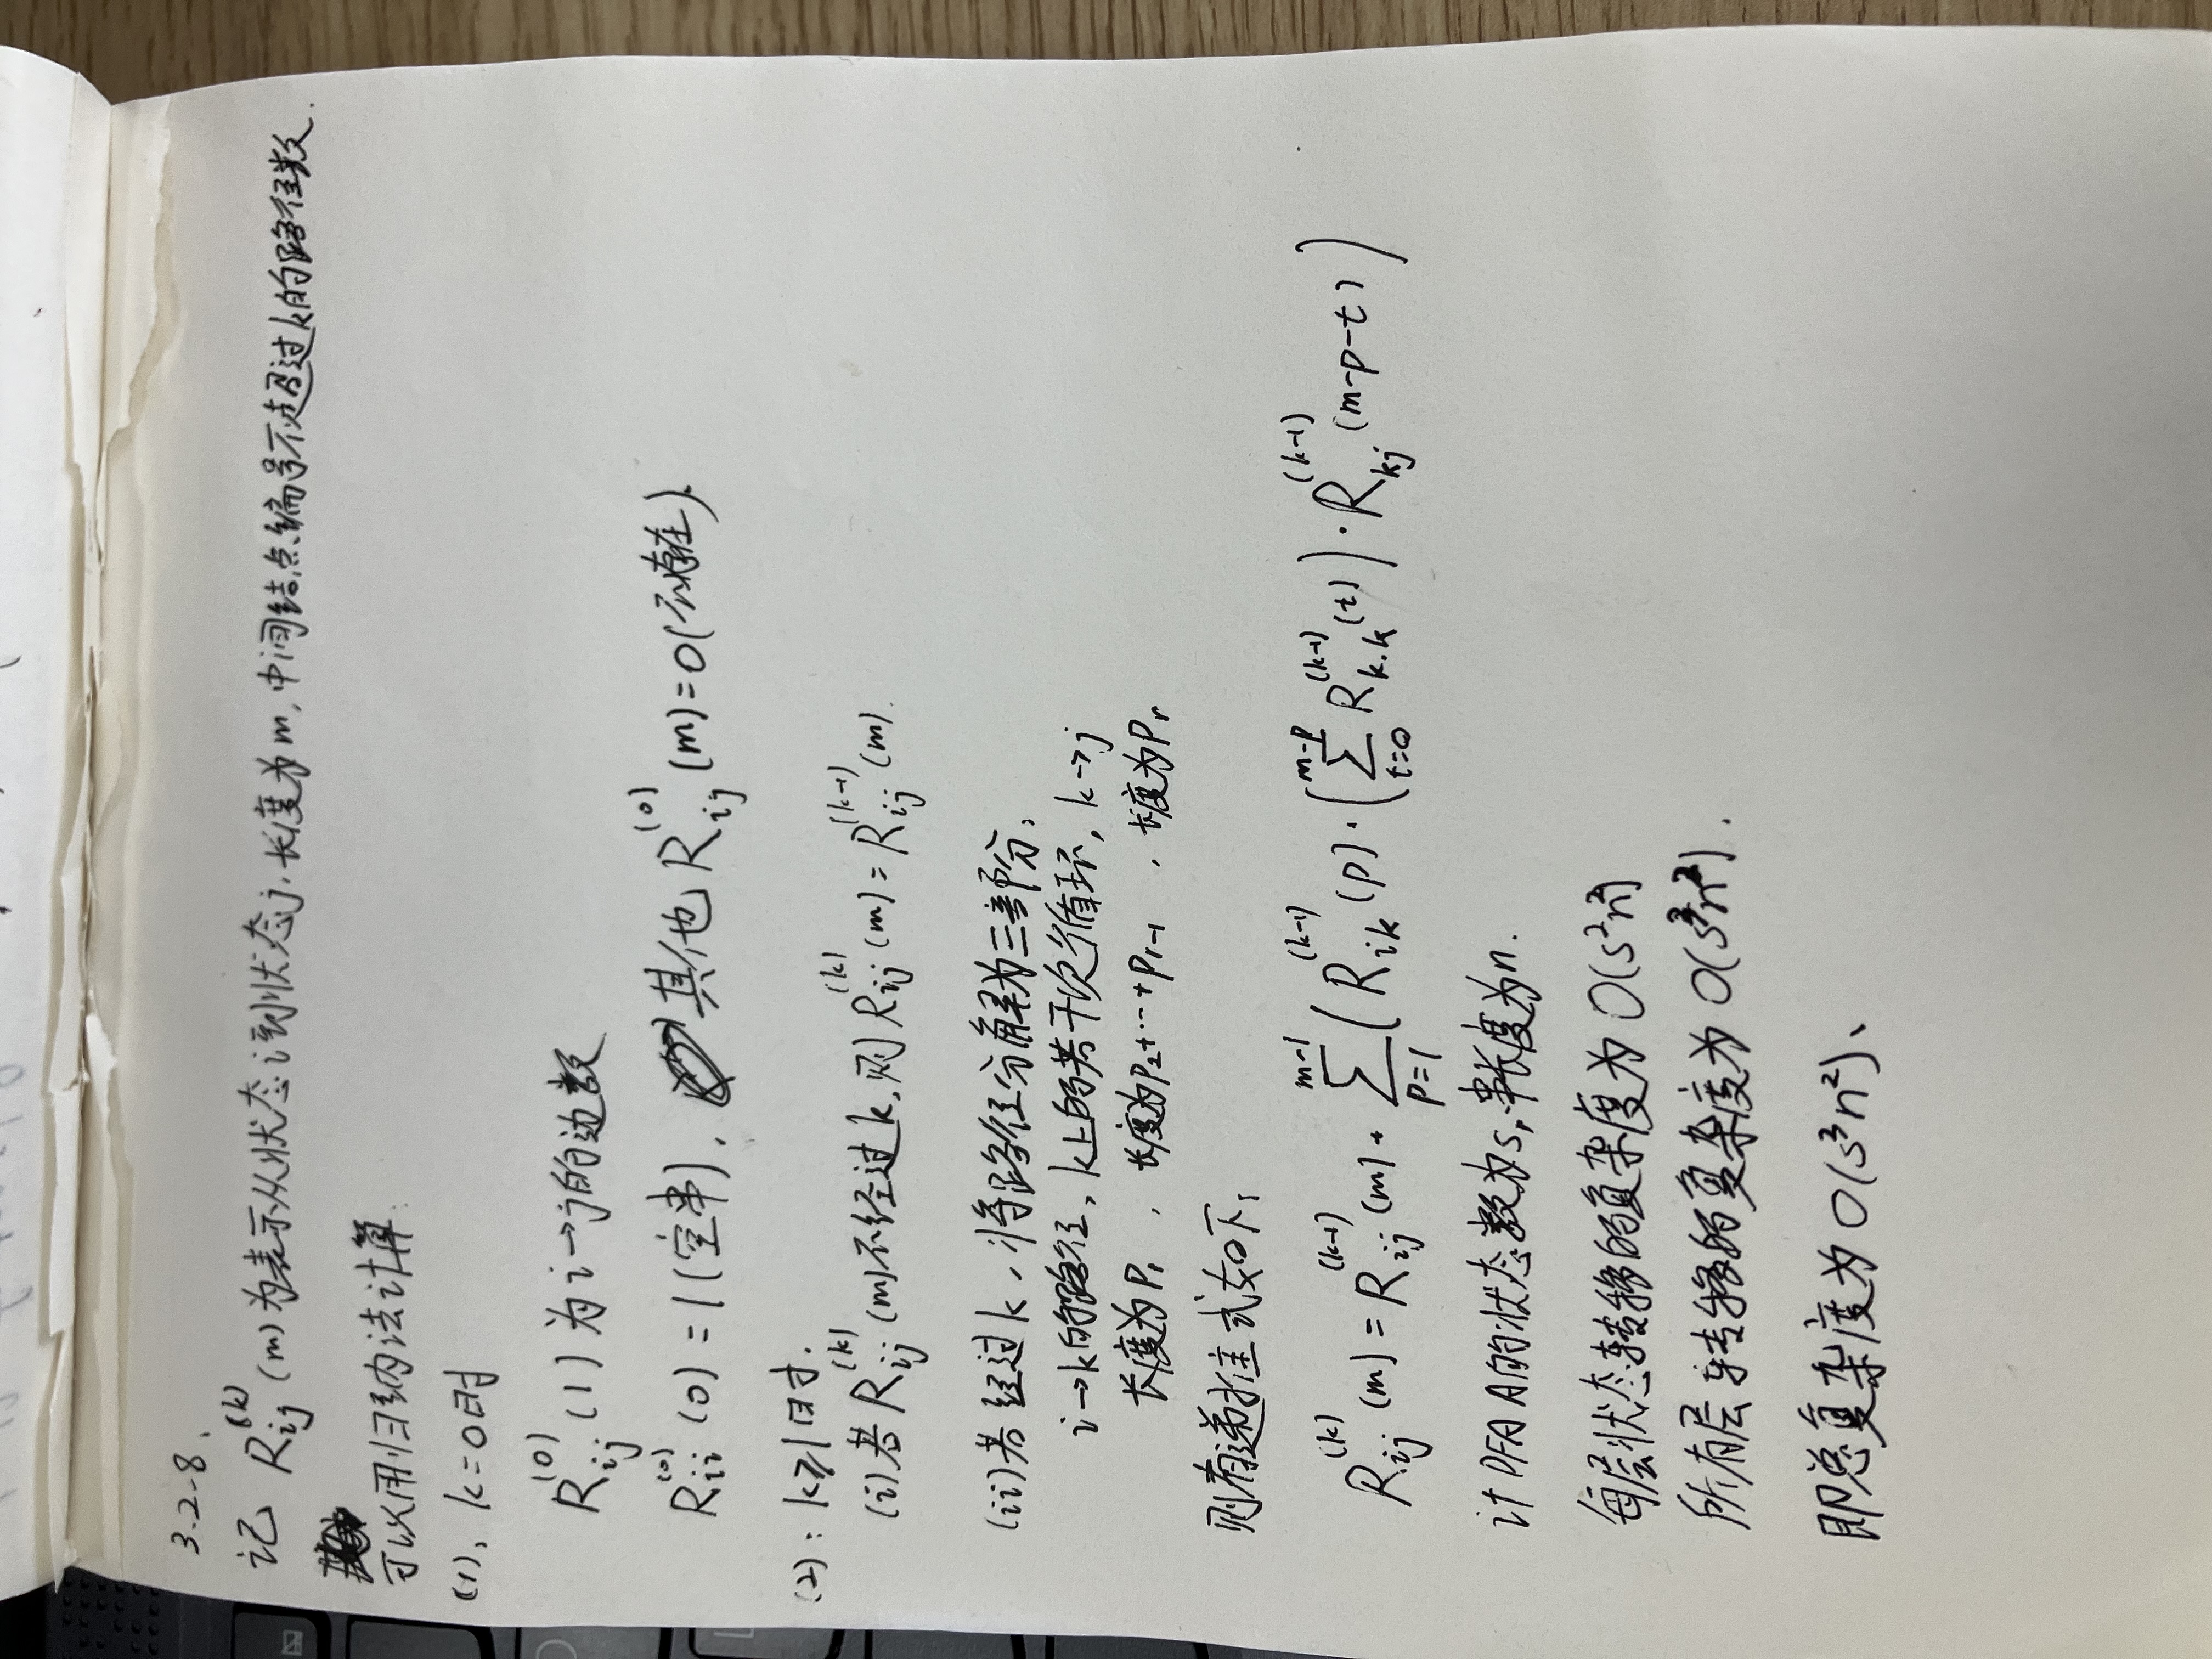 3.2-8、
记 R_{ij}^{(k)}(m)为表示从状态i到状态j,长度为m,中间结点编号不超过k的路径数.
可以用归纳法计算:
(1)、k=0时
R_{ij}^{(0)}(1)为i→j的边数
R_{ii}^{(0)}(0)=1(空串), 其他R_{ij}^{(0)}(m)=0(不存在).
(2): k≥1时.
(i)若R_{ij}^{(k)}(m)不经过k,则R_{ij}^{(k)}(m)=R_{ij}^{(k-1)}(m).
(ii)若经过k,将路径分解为三部分:
i→k的路径,k上的若干次循环,k→j
长度为P_1,长度为P_2+…+P_{r-1},长度为P_r
则有递推式如下:
R_{ij}^{(k)}(m)=R_{ij}^{(k-1)}(m)+\sum_{p=1}^{m-1}(R_{ik}^{(k-1)}(p)·(\sum_{t=0}^{m-p}R_{k.k}^{(k-1)}(t))·R_{kj}^{(k-1)}(m-p-t))
计DFA A的状态数为s,串长度为n.
每层状态转移的复杂度为O(s^2n^2)
所有层 转移的复杂度为O(s^3n^2).
即总复杂度为O(s^3n^2)、